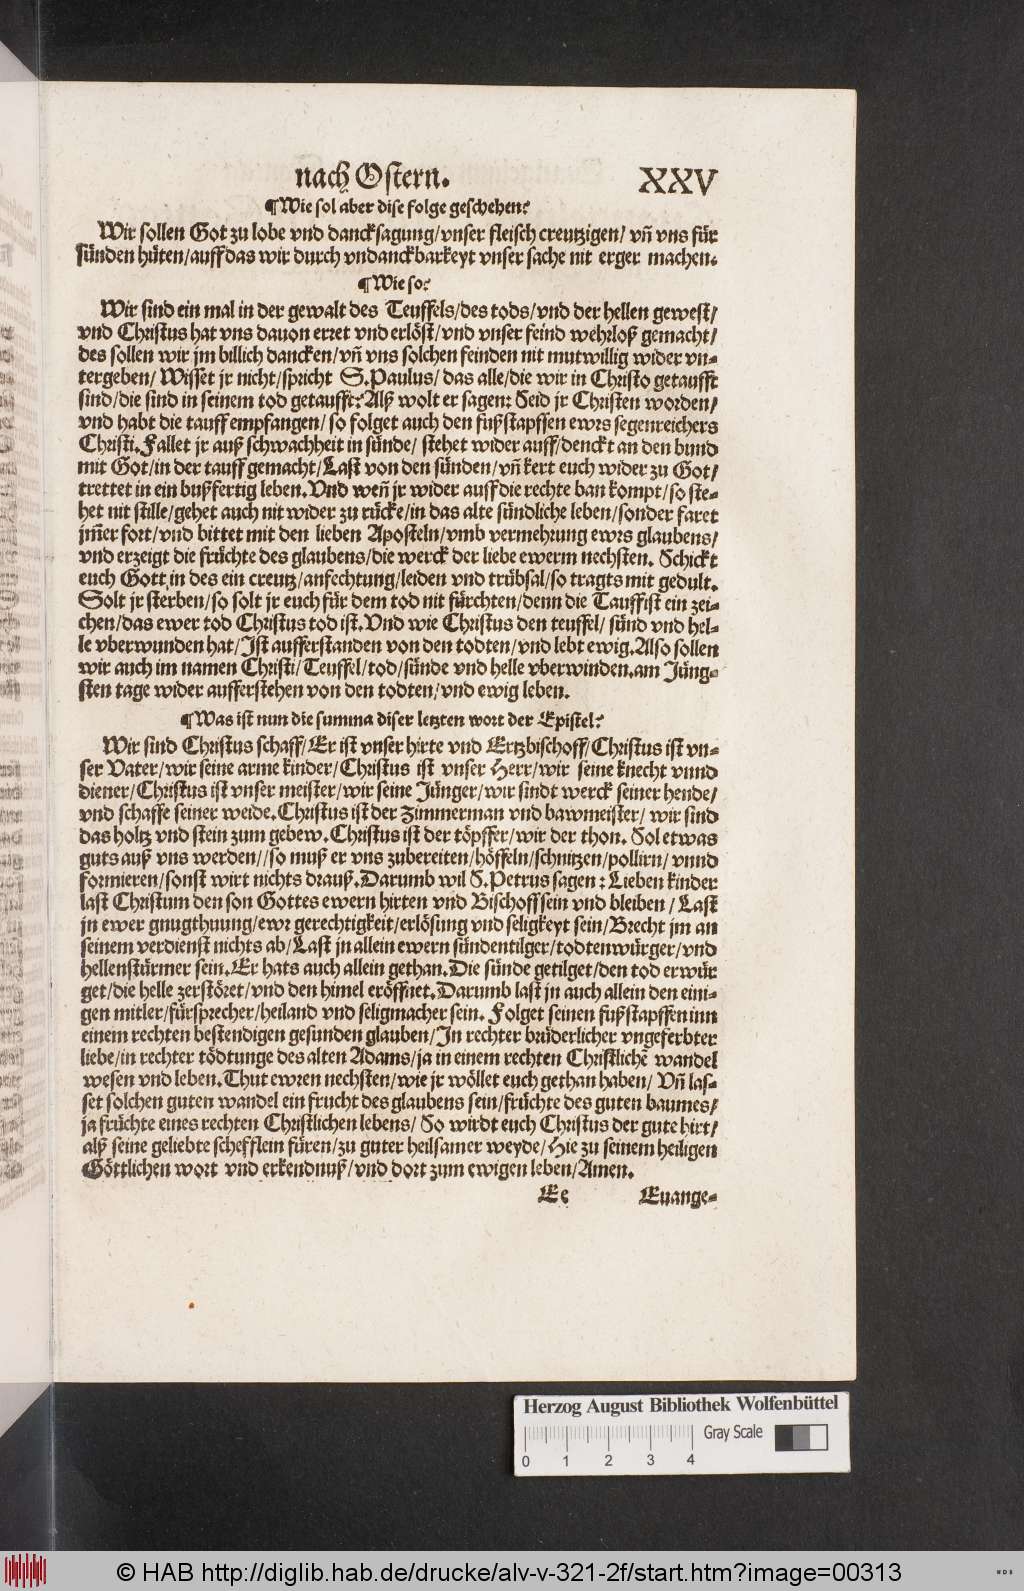 nach Ostern. XXV
¶Wie sol aber dise folge geschehen?
Wir sollen Got zu lobe vnd dancksagung/vnser fleisch creutzigen/ vñ vns für
sünden hüten/auff das wir durch vndanckbarkeyt vnser sache nit erger machen.
¶Wie so?
Wir sind ein mal in der gewalt des Teuffels/des tods/vnd der hellen gewest/
vnd Christus hat vns dauon erret vnd erlöst/vnd vnser feind wehrloß gemacht/
des sollen wir jm billich dancken/vñ vns solchen feinden nit mutwillig wider vn-
tergeben/ Wisset jr nicht/spricht S.Paulus/ das alle/die wir in Christo getaufft
sind/die sind in seinem tod getaufft? Alß wolt er sagen: Seid jr Christen worden/
vnd habt die tauff empfangen/ so folget auch den fußstapffen ewrs segenreichers
Christi. Fallet jr auß schwachheit in sünde/ stehet wider auff/denckt an den bund
mit Got/in der tauff gemacht/Last von den sünden/vñ kert euch wider zu Got/
trettet in ein bußfertig leben. Vnd weñ jr wider auff die rechte ban kompt/so ste-
het nit stille/gehet auch nit wider zu rücke/in das alte sündliche leben/sonder faret
jm̃er fort/vnd bittet mit den lieben Aposteln/vmb vermehrung ewrs glaubens/
vnd erzeigt die früchte des glaubens/die werck der liebe ewerm nechsten. Schickt
euch Gott in des ein creutz/anfechtung/leiden vnd trübsal/so tragts mit gedult.
Solt jr sterben/so solt jr euch für dem tod nit fürchten/denn die Tauff ist ein zei-
chen/das ewer tod Christus tod ist. Vnd wie Christus den teuffel/ sünd vnd hel-
le vberwunden hat/Ist aufferstanden von den todten/vnd lebt ewig. Also sollen
wir auch im namen Christi/Teuffel/tod/sünde vnd helle vberwinden.am Jüng-
sten tage wider aufferstehen von den todten/vnd ewig leben.
¶Was ist nun die summa diser letzten wort der Epistel?
Wir sind Christus schaff/Er ist vnser hirte vnd Ertzbischoff/Christus ist vn-
ser Vater/wir seine arme kinder/Christus ist vnser Herr/wir seine knecht vnnd
diener/Christus ist vnser meister/wir seine Jünger/wir sindt werck seiner hende/
vnd schaffe seiner weide. Christus ist der Zimmerman vnd bawmeister/ wir sind
das holtz vnd stein zum gebew. Christus ist der töpffer/wir der thon. Sol etwas
guts auß vns werden//so muß er vns zubereiten/höffeln/schnitzen/pollirn/ vnnd
formieren/sonst wirt nichts drauß. Darumb wil S.Petrus sagen: Lieben kinder
last Christum den son Gottes ewern hirten vnd Bischoff sein vnd bleiben / Last
jn ewer gnugthuung/ewr gerechtigkeit/erlösung vnd seligkeyt sein/Brecht jm an
seinem verdienst nichts ab/Last jn allein ewern sündentilger/todtenwürger/vnd
hellenstürmer sein. Er hats auch allein gethan. Die sünde getilget/den tod erwür
get/die helle zerstöret/vnd den himel eröffnet. Darumb last jn auch allein den eini-
gen mitler/fürsprecher/heiland vnd seligmacher sein. Folget seinen fußstapffen inn
einem rechten bestendigen gesunden glauben/In rechter brüderlicher vngeferbter
liebe/in rechter tödtunge des alten Adams/ja in einem rechten Christlichē wandel
wesen vnd leben. Thut ewren nechsten/wie jr wöllet euch gethan haben/ Vñ las-
set solchen guten wandel ein frucht des glaubens sein/früchte des guten baumes/
ja früchte eines rechten Christlichen lebens/ So wirdt euch Christus der gute hirt/
alß seine geliebte schefflein füren/zu guter heilsamer weyde/Hie zu seinem heiligen
Göttlichen wort vnd erkendnuß/vnd dort zum ewigen leben/Amen.
Ee Euange-
Herzog August Bibliothek Wolfenbüttel
Gray Scale
0 1 2 3 4
© HAB http://diglib.hab.de/drucke/alv-v-321-2f/start.htm?image=00313